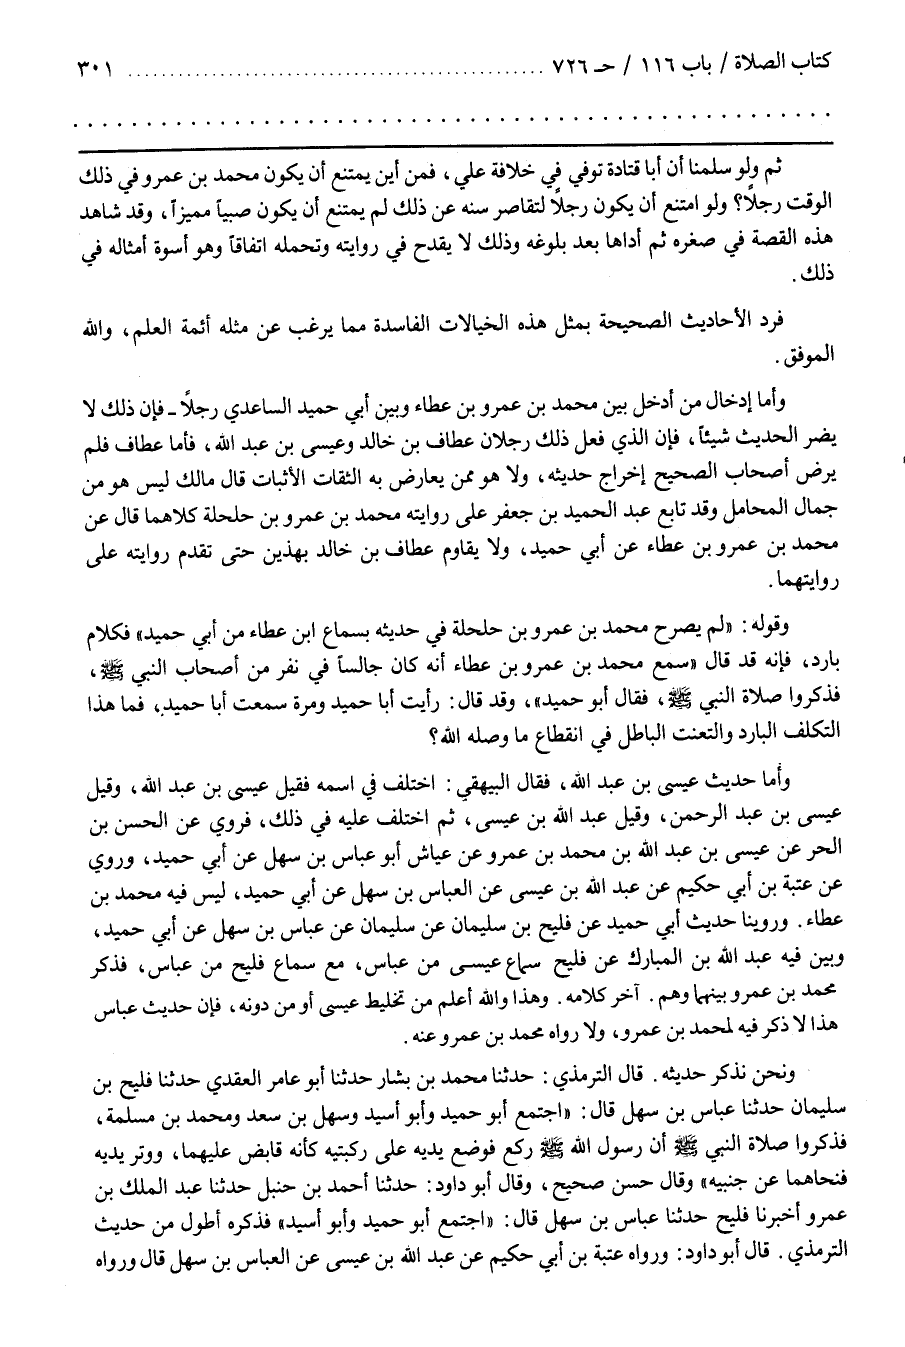 كتاب الصلاة / باب ١١٦ / حـ ٧٢٦ ............................................. ٣٠١
ثم ولو سلمنا أن أبا قتادة توفي في خلافة علي، فمن أين يمتنع أن يكون محمد بن عمرو في ذلك
الوقت رجلاً؟ ولو امتنع أن يكون رجلاً لتقاصر سنه عن ذلك لم يمتنع أن يكون صبياً مميزاً، وقد شاهد
هذه القصة في صغره ثم أداها بعد بلوغه وذلك لا يقدح في روايته وتحمله اتفاقاً وهو أسوة أمثاله في
ذلك.
فرد الأحاديث الصحيحة بمثل هذه الخيالات الفاسدة مما يرغب عن مثله أئمة العلم، والله
الموفق.
وأما إدخال من أدخل بين محمد بن عمرو بن عطاء وبين أبي حميد الساعدي رجلاً ـ فإن ذلك لا
يضر الحديث شيئاً، فإن الذي فعل ذلك رجلان عطاف بن خالد وعيسى بن عبد الله، فأما عطاف فلم
يرض أصحاب الصحيح إخراج حديثه، ولا هو ممن يعارض به الثقات الأثبات قال مالك ليس هو من
جمال المحامل وقد تابع عبد الحميد بن جعفر على روايته محمد بن عمرو بن حلحلة كلاهما قال عن
محمد بن عمرو بن عطاء عن أبي حميد، ولا يقاوم عطاف بن خالد بهذين حتى تقدم روايته على
روايتهما.
وقوله: «لم يصرح محمد بن عمرو بن حلحلة في حديثه بسماع ابن عطاء من أبي حميد» فكلام
بارد، فإنه قد قال «سمع محمد بن عمرو بن عطاء أنه كان جالساً في نفر من أصحاب النبي ﷺ،
فذكروا صلاة النبي ﷺ، فقال أبو حميد»، وقد قال: رأيت أبا حميد ومرة سمعت أبا حميد، فما هذا
التكلف البارد والتعنت الباطل في انقطاع ما وصله الله؟
وأما حديث عيسى بن عبد الله، فقال البيهقي: اختلف في اسمه فقيل عيسى بن عبد الله، وقيل
عيسى بن عبد الرحمن، وقيل عبد الله بن عيسى، ثم اختلف عليه في ذلك، فروي عن الحسن بن
الحر عن عيسى بن عبد الله بن محمد بن عمرو عن عياش أبو عباس بن سهل عن أبي حميد، وروي
عن عتبة بن أبي حكيم عن عبد الله بن عيسى عن العباس بن سهل عن أبي حميد، ليس فيه محمد بن
عطاء. وروينا حديث أبي حميد عن فليح بن سليمان عن سليمان عن عباس بن سهل عن أبي حميد،
وبين فيه عبد الله بن المبارك عن فليح سماع عيسى من عباس، مع سماع فليح من عباس، فذكر
محمد بن عمرو بينهما وهم. آخر كلامه. وهذا والله أعلم من تخليط عيسى أو من دونه، فإن حديث عباس
هذا لا ذكر فيه لمحمد بن عمرو، ولا رواه محمد بن عمرو عنه.
ونحن نذكر حديثه. قال الترمذي: حدثنا محمد بن بشار حدثنا أبو عامر العقدي حدثنا فليح بن
سليمان حدثنا عباس بن سهل قال: «اجتمع أبو حميد وأبو أسيد وسهل بن سعد ومحمد بن مسلمة،
فذكروا صلاة النبي ﷺ أن رسول الله ﷺ ركع فوضع يديه على ركبتيه كأنه قابض عليهما، ووتر يديه
فنحاهما عن جنبيه» وقال حسن صحيح، وقال أبو داود: حدثنا أحمد بن حنبل حدثنا عبد الملك بن
عمرو أخبرنا فليح حدثنا عباس بن سهل قال: «اجتمع أبو حميد وأبو أسيد» فذكره أطول من حديث
الترمذي. قال أبو داود: ورواه عتبة بن أبي حكيم عن عبد الله بن عيسى عن العباس بن سهل قال ورواه